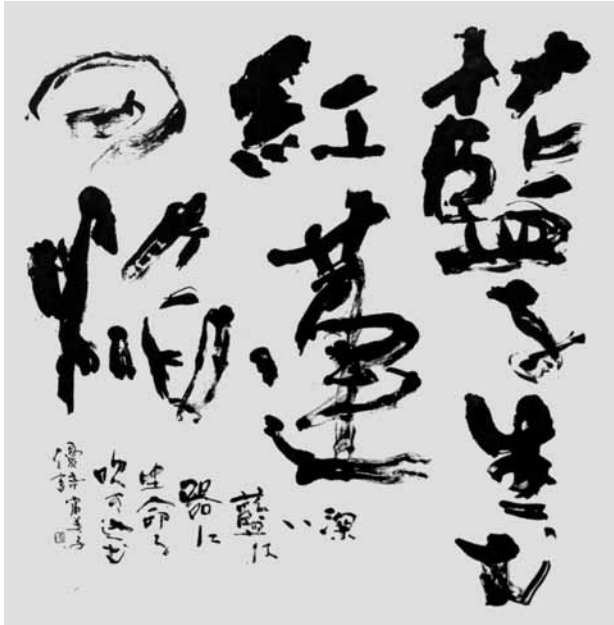 藍を生む
紅蓮
の焔
深い
藍は
器に
生命を
吹き込む